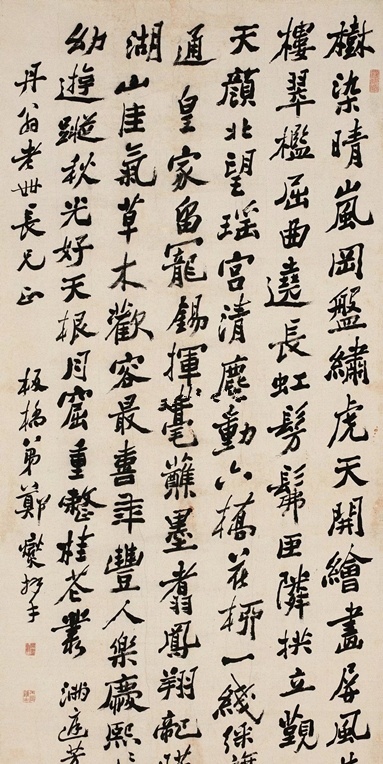 樹染晴嵐岡盤繡虎天開繪畫屏風
樓翠檻屈曲遶長虹髣髴匝隣拱立覲
天顏北望瑤宮清塵動六橋花柳一綫
通皇家留寵錫揮毫蘸墨翥鳳翔
湖山佳氣草木歡容最喜年豐人樂慶熙
幼遊蹤秋光好天根月窟重整桂花叢 滿庭芳
丹翁老世長兄正 板橋弟鄭燮拜手